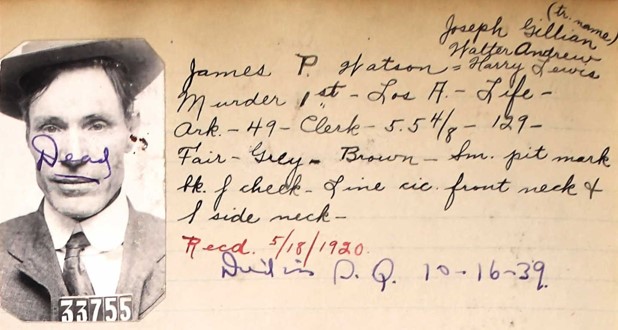 (tr. name)
Joseph Gillian
Walter Andrew
James P. Watson = Harry Lewis
Murder 1st - Los A. - Life -
Ark. - 49 - Clerk - 5.5 4/8 - 129 -
Fair - Grey - Brown - Sm. pit mark
bk. of cheek - Line cic. front neck &
l side neck -
Recd. 5/18/1920.
Died in S. Q. 10-16-39.
Dead
33755